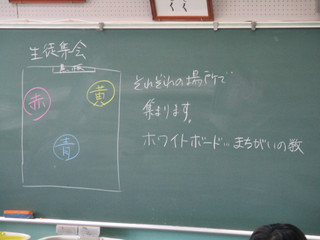 生徒集会
黒板
赤
黄
青
それぞれの場所で
集まります。
ホワイトボード…まちがいの数